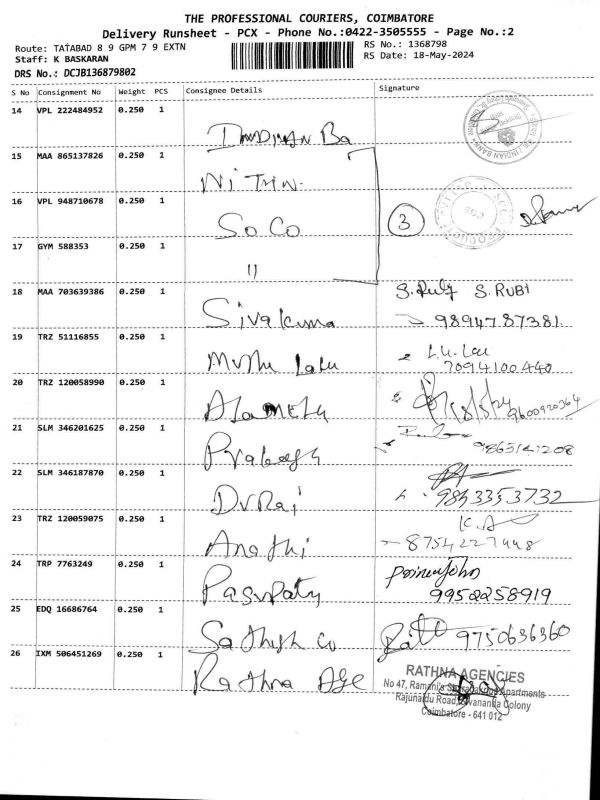 THE PROFESSIONAL COURIERS, COIMBATORE
Delivery Runsheet - PCX - Phone No.:0422-3505555 - Page No.:2
Route: TATABAD 8 9 GPM 7 9 EXTN
RS No.: 1368798
Staff: K BASKARAN
RS Date: 18-May-2024
DRS No.: DCJB136879802
S No Consignment No Weight PCS Consignee Details Signature
14 VPL 222484952 0.250 1
INDIAN BANK
15 MAA 865137826 0.250 1 Nithin
16 VPL 948710678 0.250 1 So Co 3
17 GYM 588353 0.250 1 "
18 MAA 703639386 0.250 1 Sivakuma S. RUBI
9894787381
19 TRZ 51116855 0.250 1 Muthu Laku
7094100440
20 TRZ 120058990 0.250 1 Alamelu 18/5/24 9600920364
21 SLM 346201625 0.250 1
22 SLM 346187870 0.250 1 DvRaj
23 TRZ 120059075 0.250 1 Anathi
24 TRP 7763249 0.250 1 Pasupaty
9952258919
25 EDQ 16686764 0.250 1 Sathish Co 9750636360
26 IXM 506451269 0.250 1 Rathna Age
RATHNA AGENCIES
No 47, Ramani's Apartments
Road, Colony
Coimbatore - 641 012